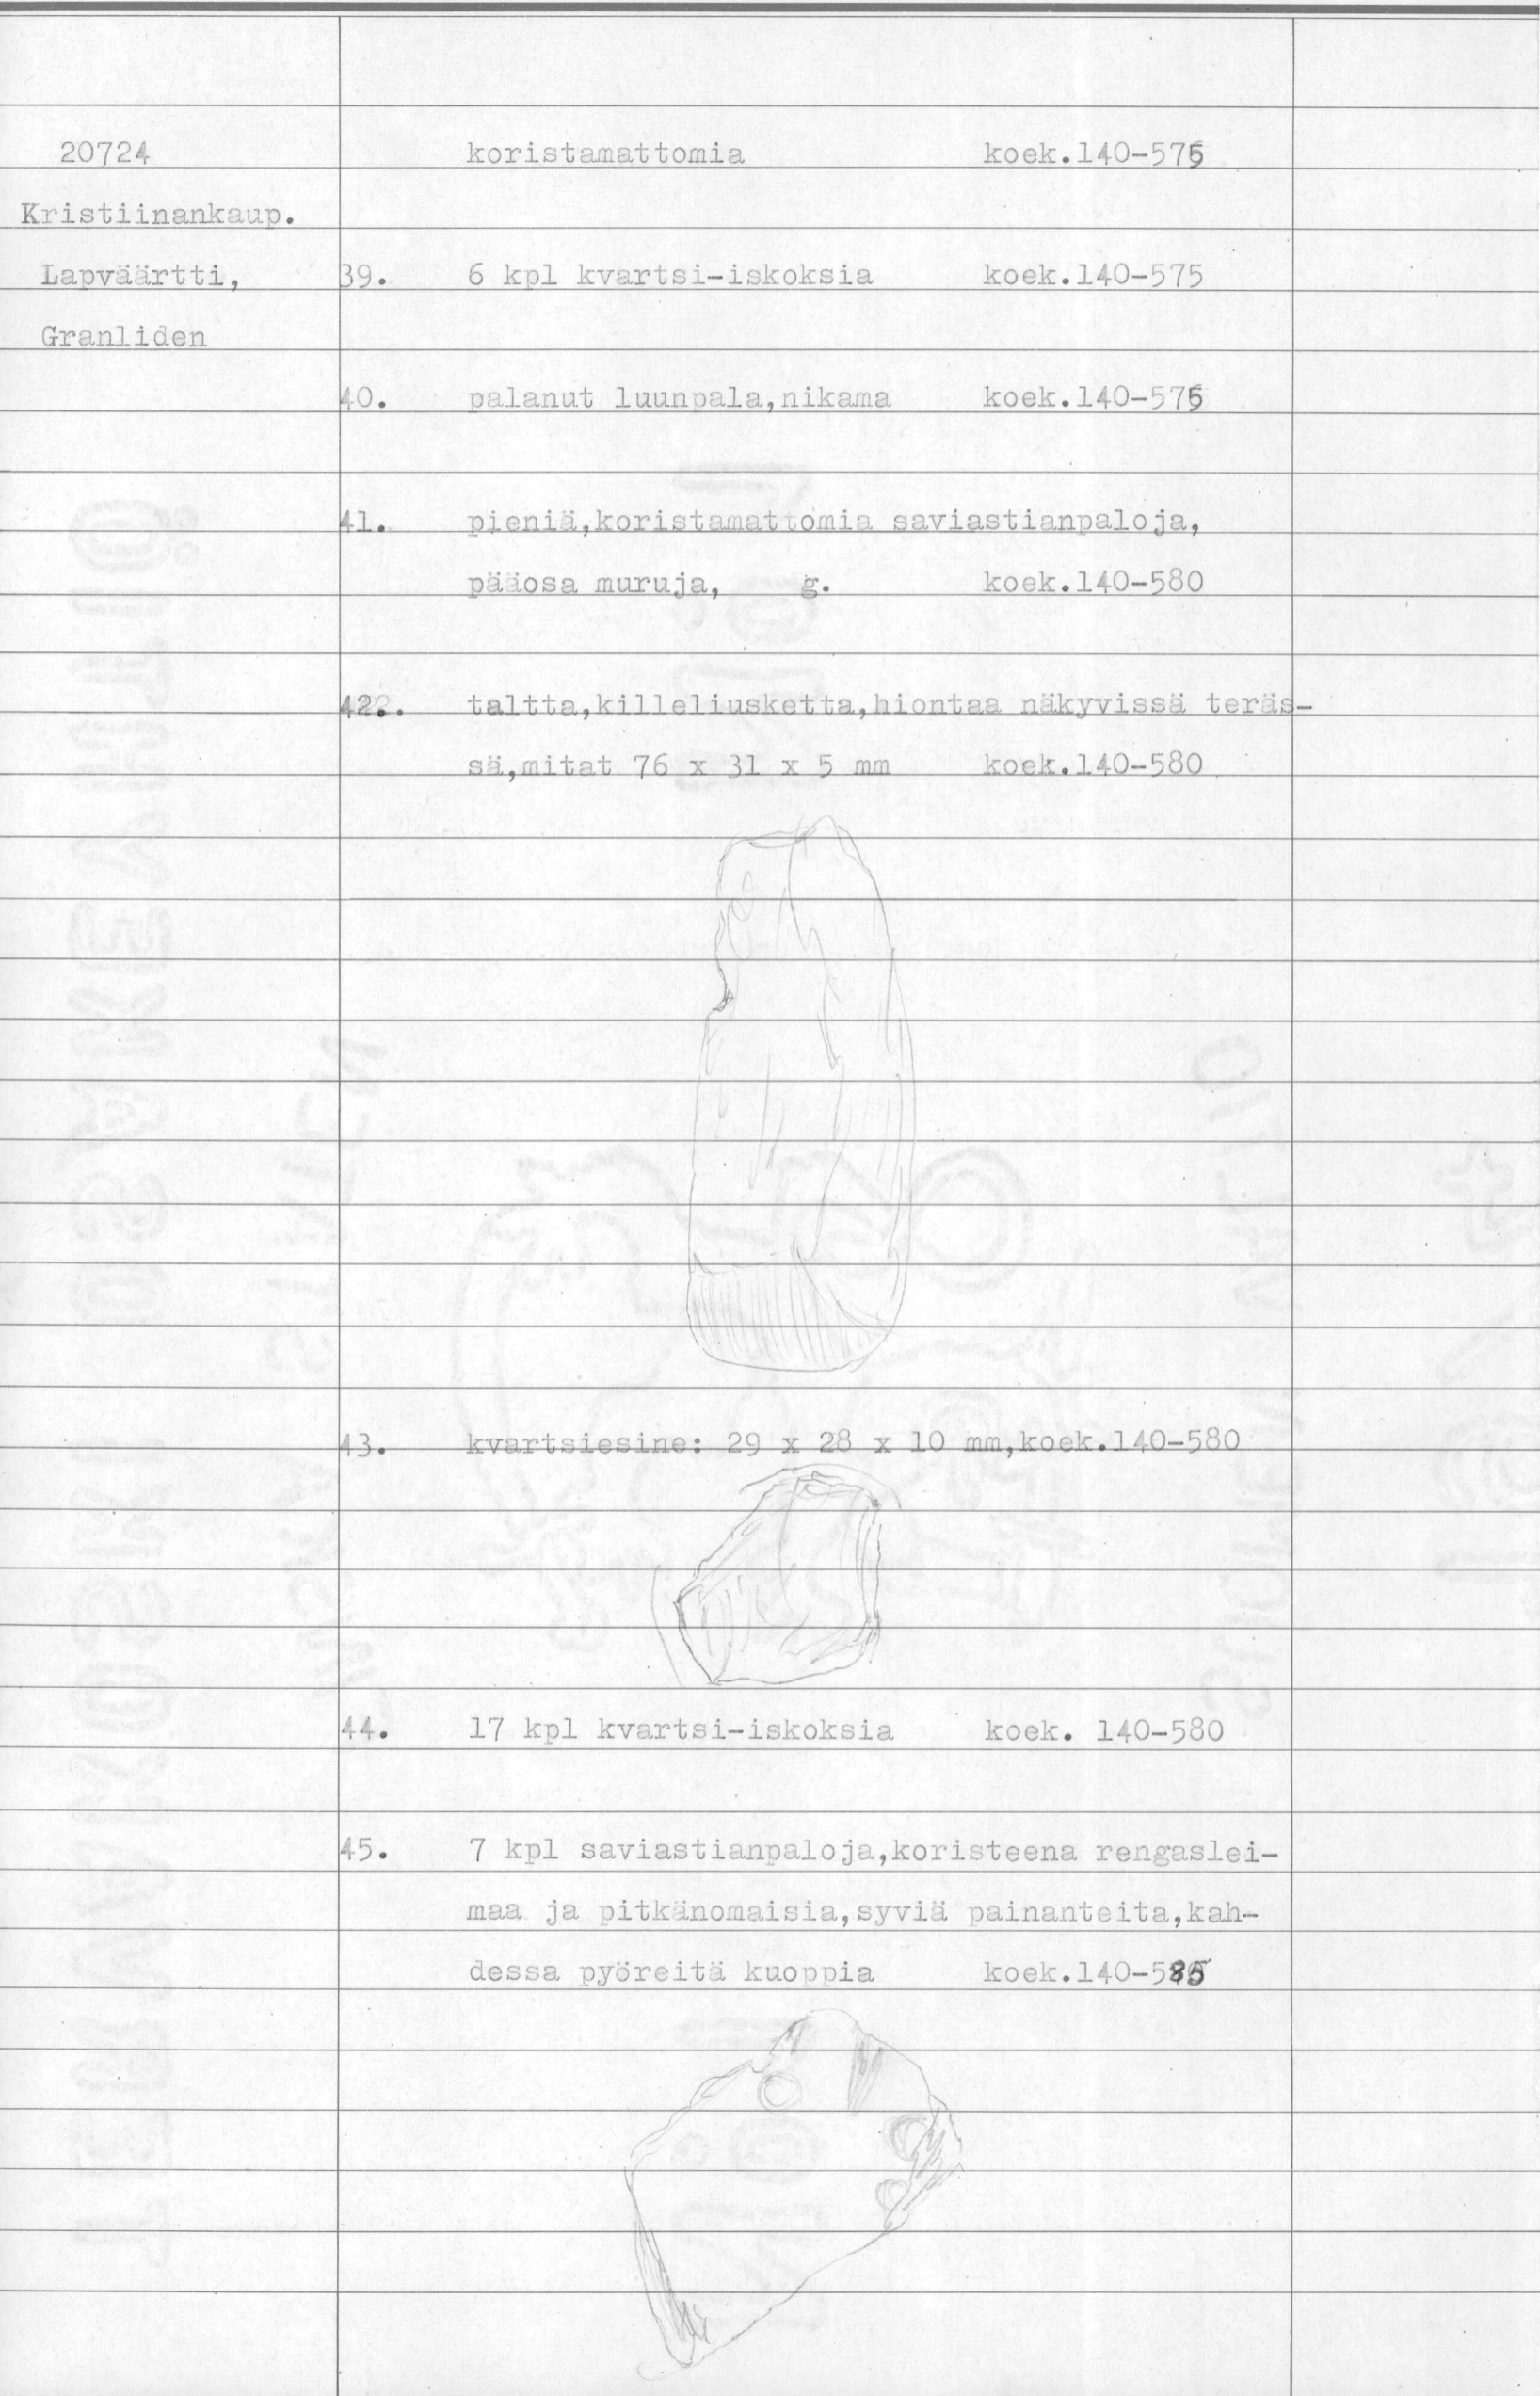 20724 koristamattomia koek.140-575
Kristiinankaup.
Lapväärtti, 39. 6 kpl kvartsi-iskoksia koek.140-575
Granliden
40. palanut luunpala,nikama koek.140-575
41. pieniä,koristamattomia saviastianpaloja,
pääosa muruja, g. koek.140-580
42. taltta,killeliusketta,hiontaa näkyvissä teräs-
sä,mitat 76 x 31 x 5 mm koek.140-580
43. kvartsiesine: 29 x 28 x 10 mm,koek.140-580
44. 17 kpl kvartsi-iskoksia koek. 140-580
45. 7 kpl saviastianpaloja,koristeena rengaslei-
maa ja pitkänomaisia,syviä painanteita,kah-
dessa pyöreitä kuoppia koek.140-585